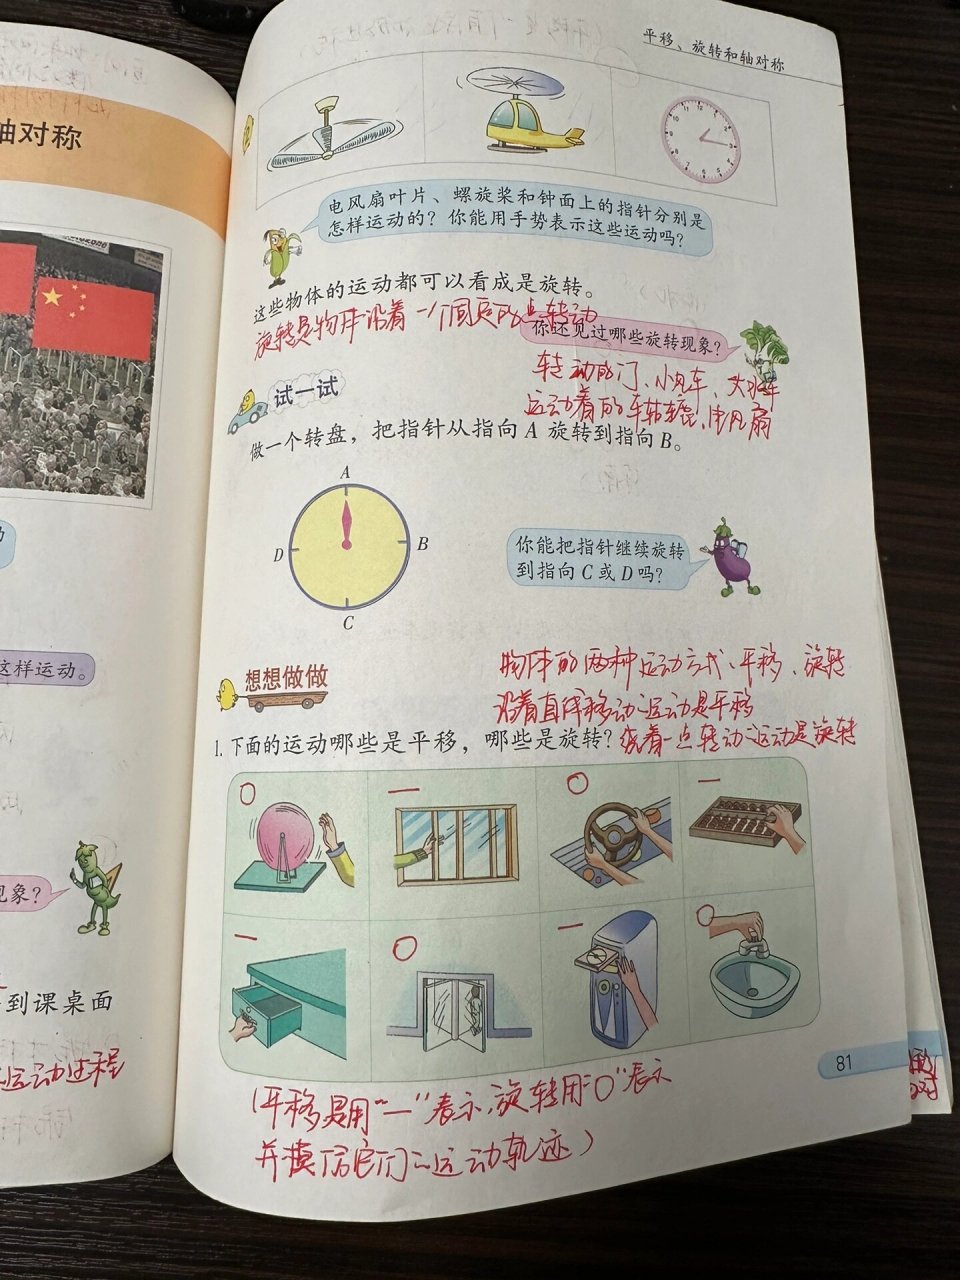 轴对称
这样运动。
现象？
到课桌面
运动过程
平移、旋转和轴对称
电风扇叶片、螺旋桨和钟面上的指针分别是
怎样运动的？你能用手势表示这些运动吗？
这些物体的运动都可以看成是旋转。
旋转是物体沿着一个固定的点转动
你还见过哪些旋转现象？
转动的门、小风车、大水车
运动着的车轱辘、电风扇
试一试
做一个转盘，把指针从指向A旋转到指向B。
A
D
B
C
你能把指针继续旋转
到指向C或D吗？
物体的两种运动方式、平移、旋转
想想做做
沿着直线移动的运动是平移
1.下面的运动哪些是平移，哪些是旋转？绕着一点转动的运动是旋转
○ — ○ —
— ○ — ○
81
(平移是用“—”表示，旋转用“○”表示
并模仿它们的运动轨迹)